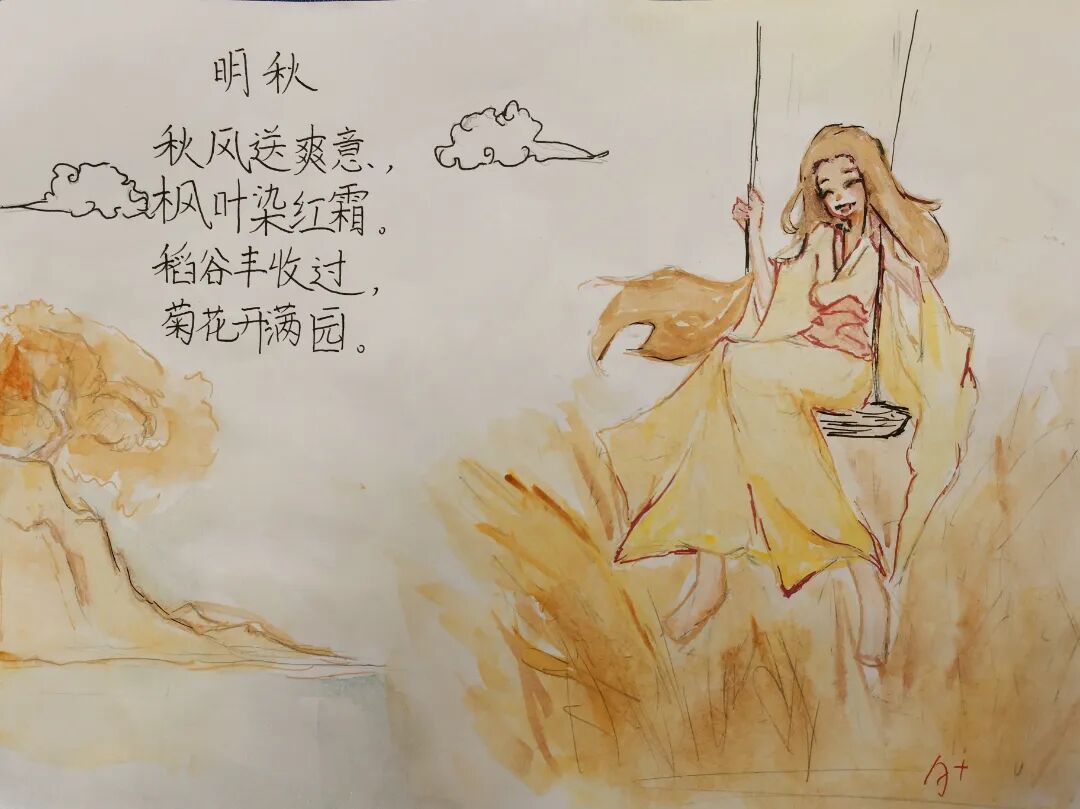 明秋
秋风送爽意，
枫叶染红霜。
稻谷丰收过，
菊花开满园。
A+